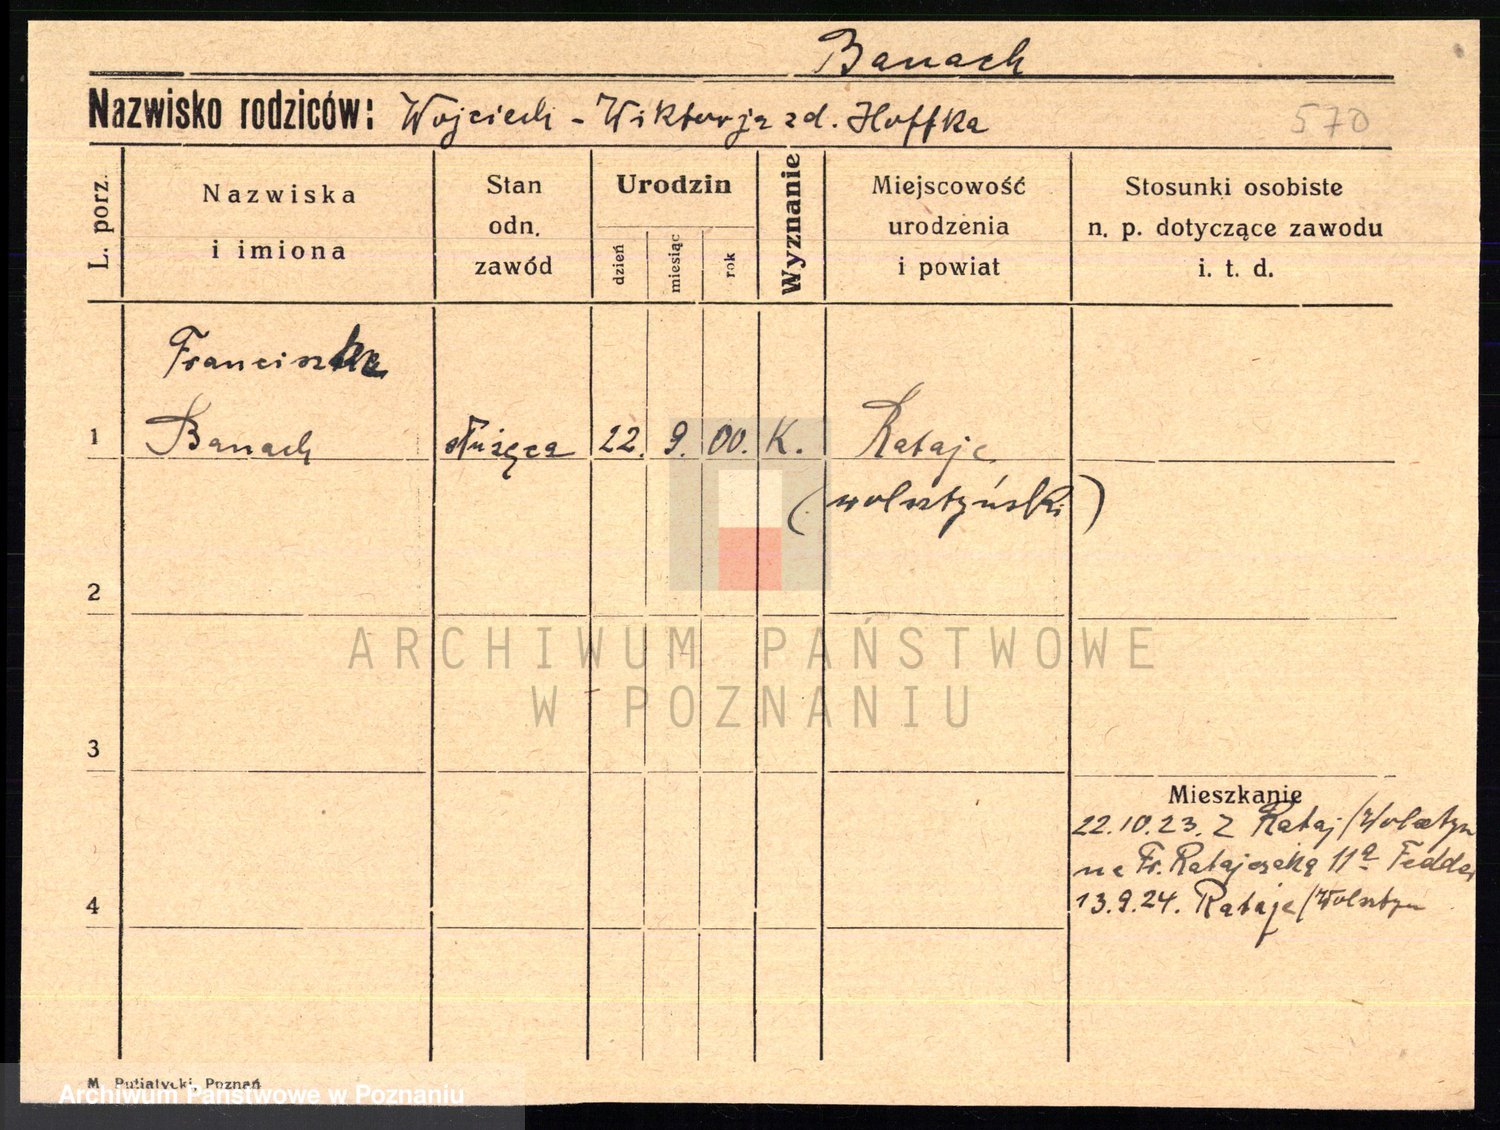 Banach
Nazwisko rodziców: Wojciech - Wiktorja zd. Hoffka
570
L. porz.
Nazwiska
i imiona
Stan
odn.
zawód
Urodzin
dzień
miesiąc
rok
Wyznanie
Miejscowość
urodzenia
i powiat
Stosunki osobiste
n. p. dotyczące zawodu
i. t. d.
Franciszka
1 Banach służąca 22. 9. 00. K. Rataje
(wolsztyński)
2
3
4
ARCHIWUM PAŃSTWOWE
W POZNANIU
Mieszkanie
22.10.23. Z Rataj/Wolsztyn
na Fr. Ratajczaka 11a
13.9.24. Rataje/Wolsztyn
M. Putiatycki, Poznań
Archiwum Państwowe w Poznaniu